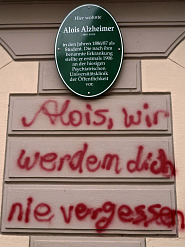 Hier wohnte
Alois Alzheimer
in den Jahren 1886/87 als
Student. Die nach ihm
benannte Erkrankung
stellte er erstmals 1906
an der hiesigen
Psychiatrischen
Universitätsklinik
der Öffentlichkeit
vor
Alois, wir
werdem dich
nie vergessen